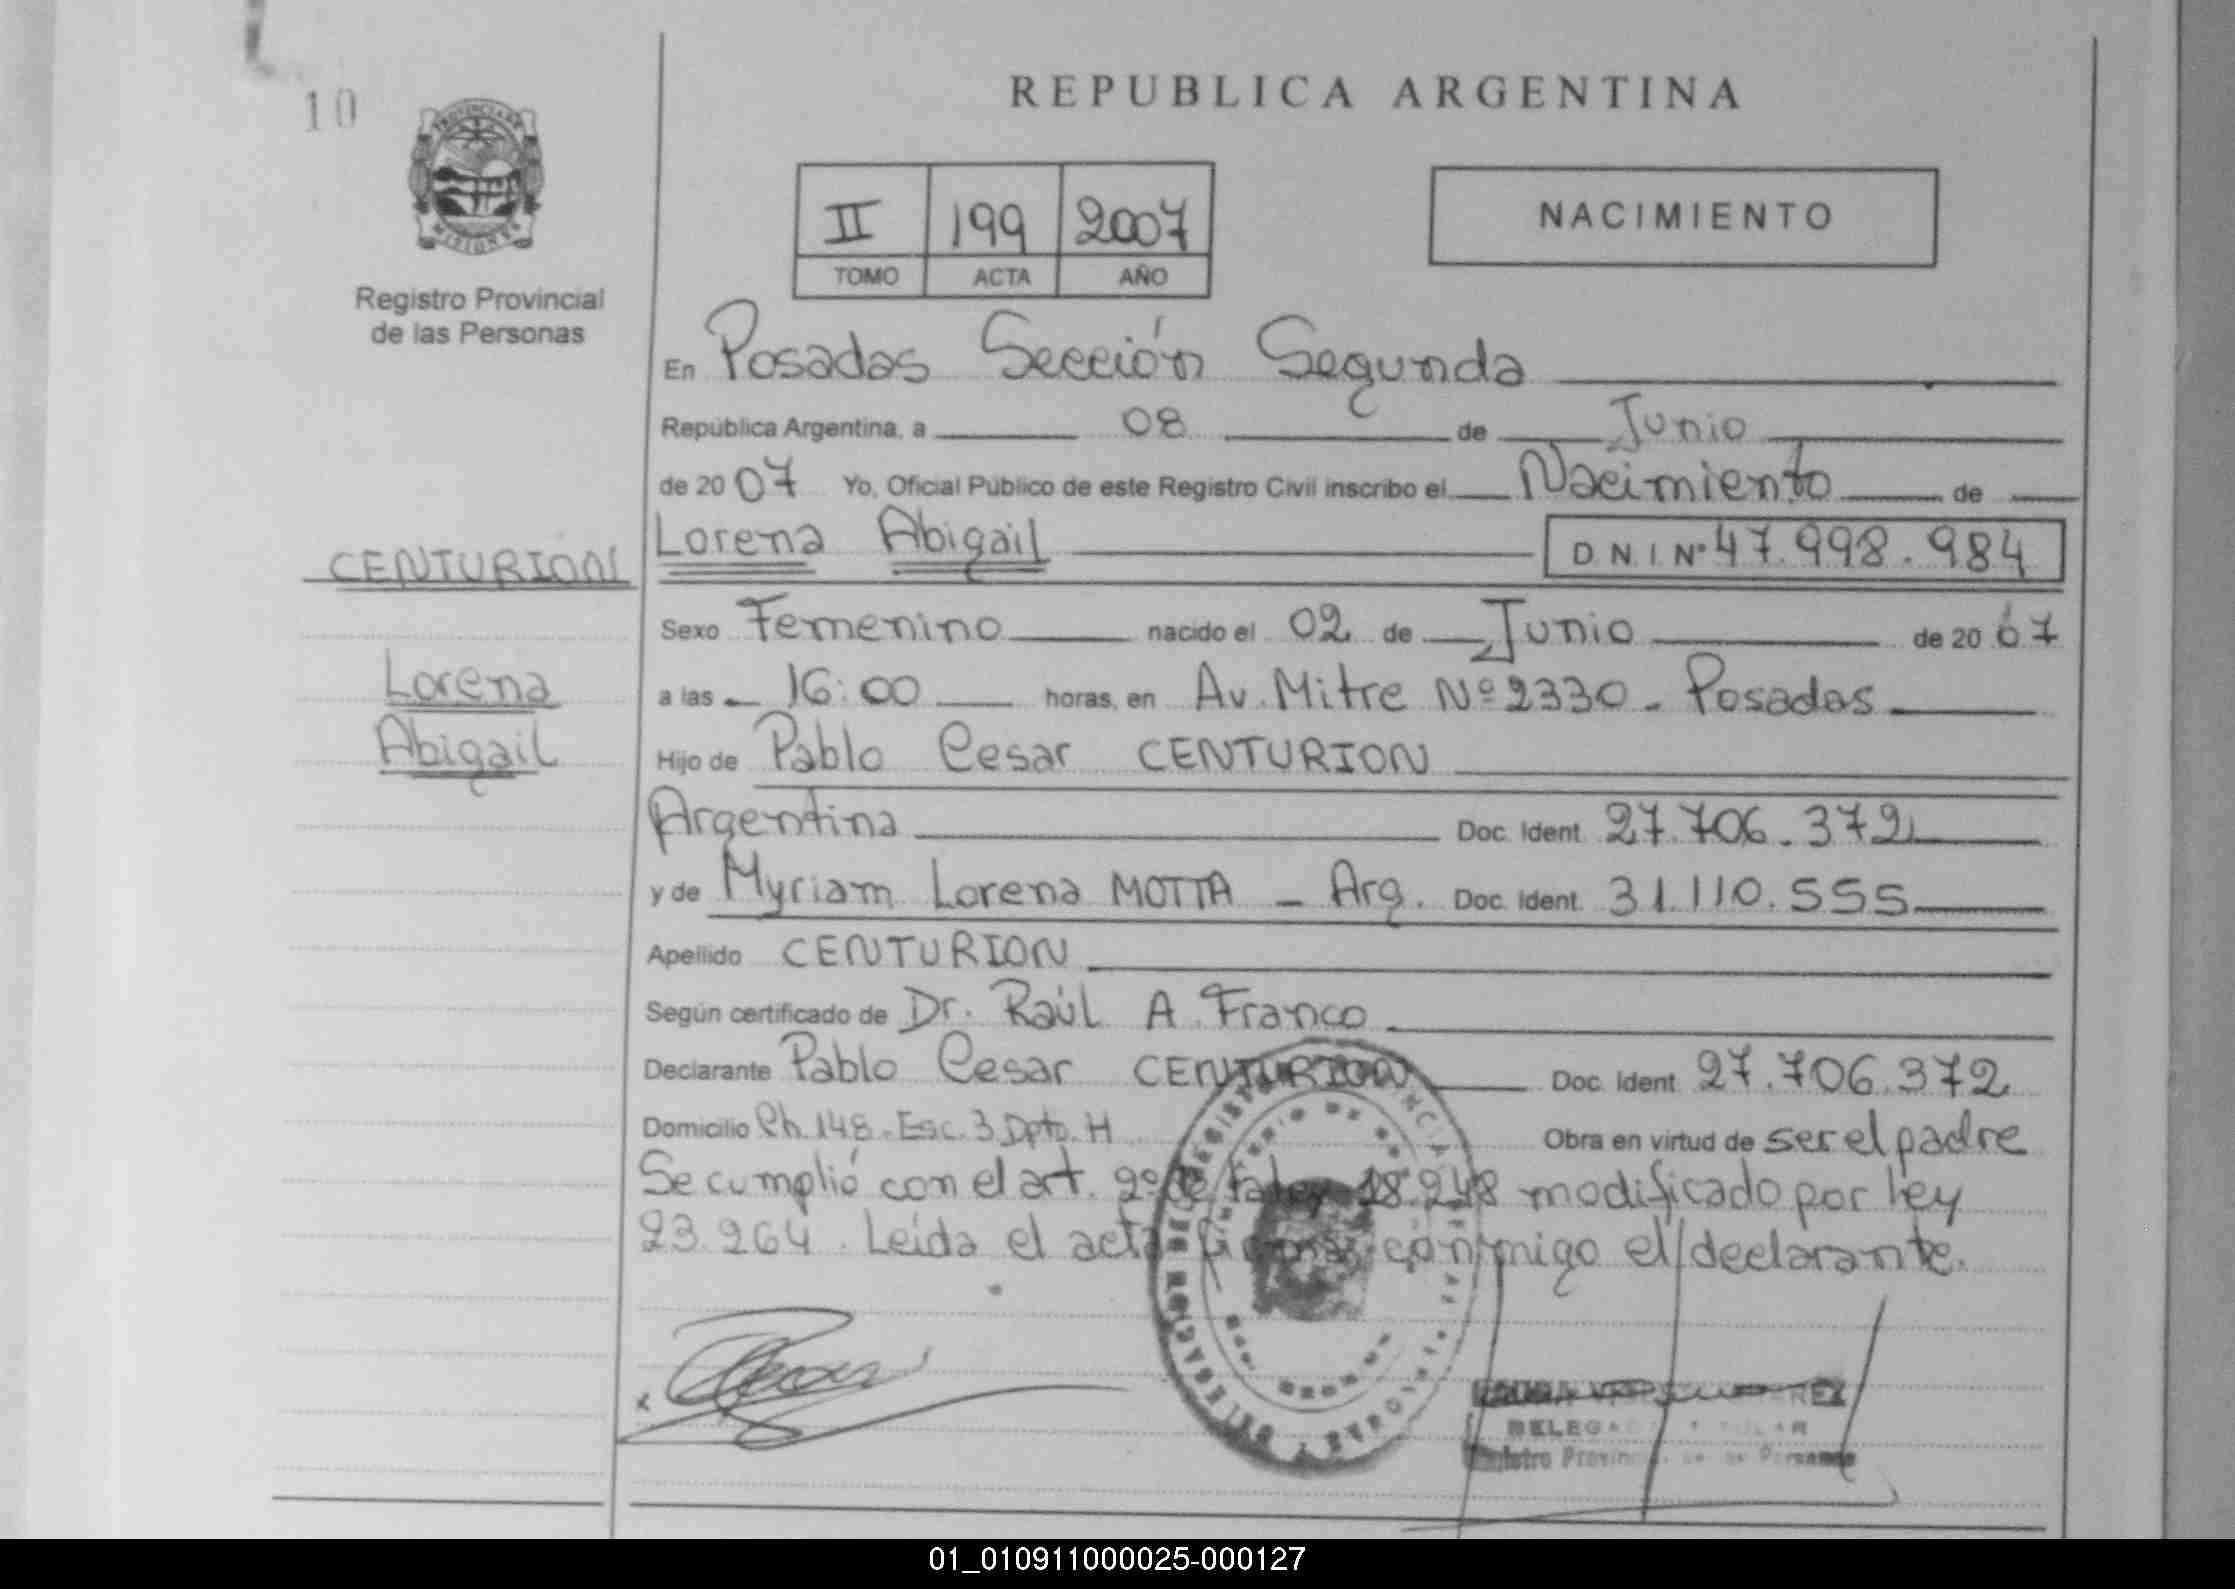 10
PROVINCIA DE
MISIONES
Registro Provincial
de las Personas
CENTURION
Lorena
Abigail
REPUBLICA ARGENTINA
II 199 2007
TOMO ACTA AÑO
NACIMIENTO
En Posadas Sección Segunda
República Argentina, a 08 de Junio
de 2007 Yo, Oficial Público de este Registro Civil inscribo el Nacimiento de
Lorena Abigail D N I Nº 47.998.984
Sexo Femenino nacido el 02 de Junio de 2007
a las 16:00 horas, en Av. Mitre Nº 2330 - Posadas
Hijo de Pablo Cesar CENTURION
Argentina Doc. Ident. 27.706.372
y de Myriam Lorena MOTTA - Arg. Doc. Ident. 31.110.555
Apellido CENTURION
Según certificado de Dr. Raúl A. Franco
Declarante Pablo Cesar CENTURION Doc. Ident. 27.706.372
Domicilio Ch. 148 - Esc. 3 Dpto. H Obra en virtud de ser el padre
Se cumplió con el art. 2º de la ley 18.248 modificado por ley
23.264. Leída el acta firma conmigo el declarante.
Registro Provincial de las Personas
01_010911000025-000127